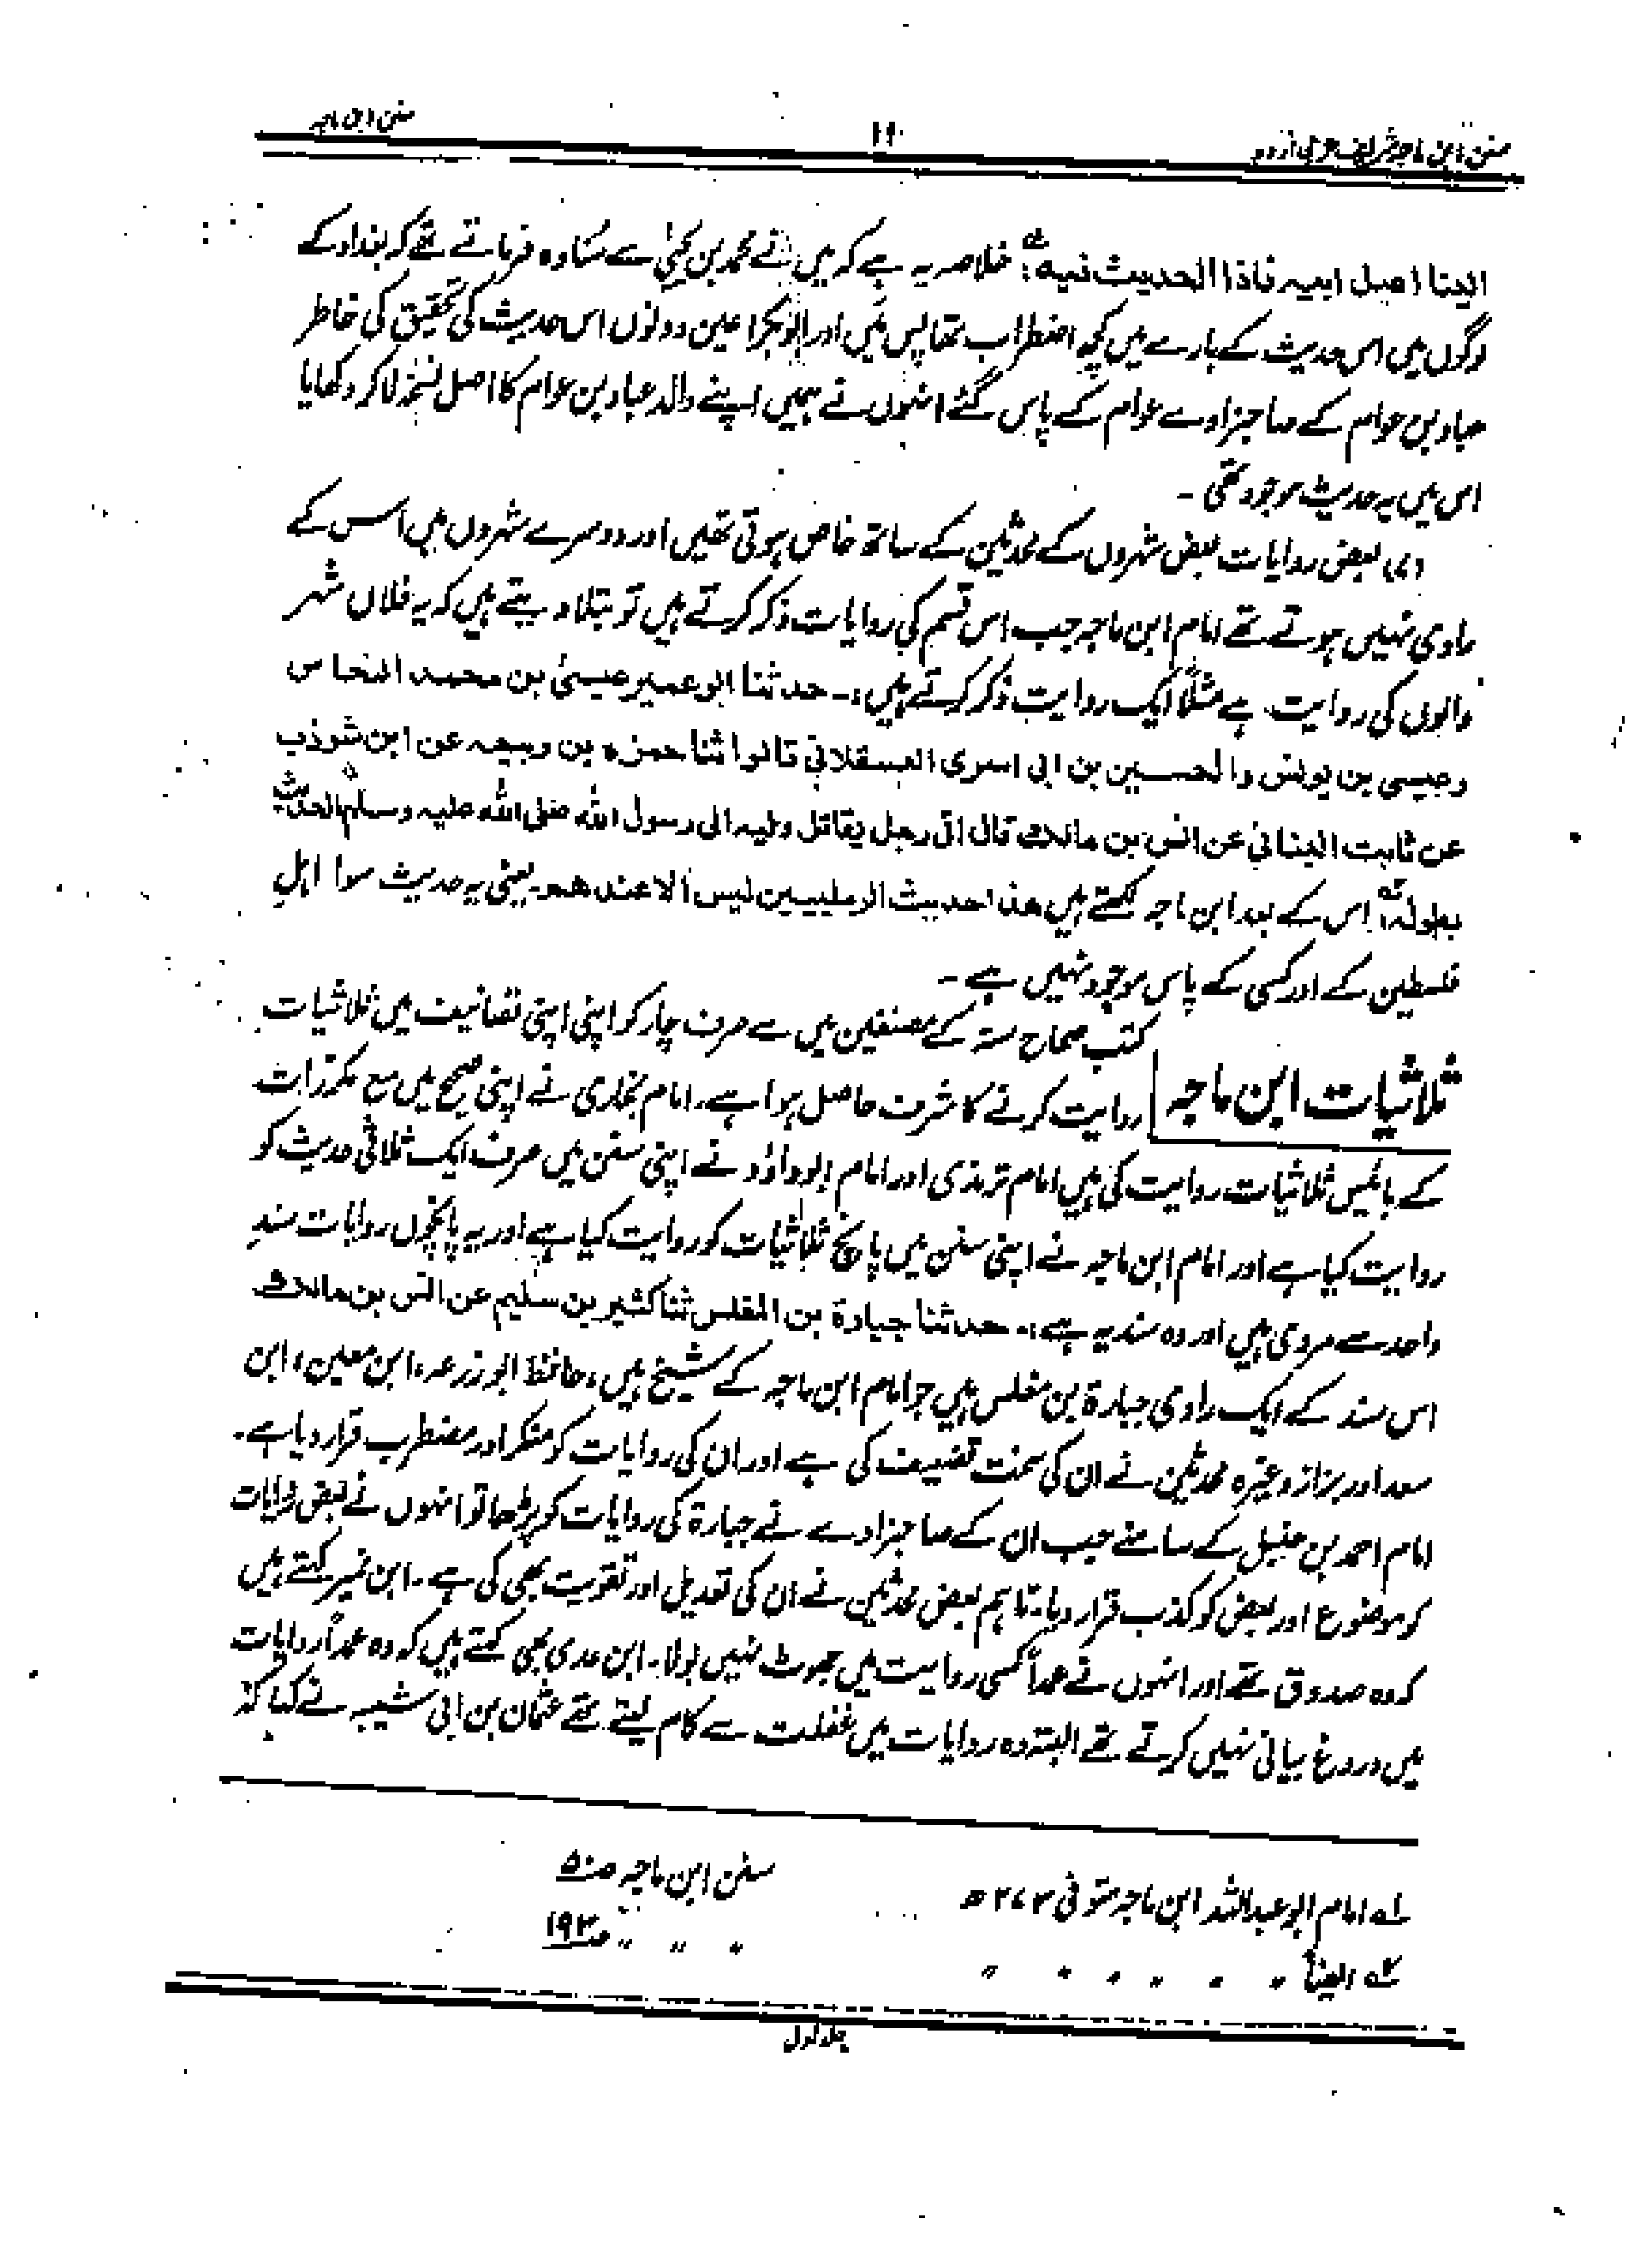 سنن ابن ماجہ شریف عربی اردو
۱۶
سنن ابن ماجہ
الینا اصل ابیہ فاذا الحدیث فیہ؛ خلاصہ یہ ہے کہ میں نے محمد بن یحییٰ سے سُنا وہ فرماتے تھے کہ بغداد کے
لوگوں میں اس حدیث کے بارے میں کچھ اضطراب تھا پس میں اور ابوبکر اعین دونوں اس حدیث کی تحقیق کی خاطر
عباد بن عوام کے صاحبزادے عوام کے پاس گئے انہوں نے ہمیں اپنے والد عباد بن عوام کا اصل نسخہ لا کر دکھایا
اس میں یہ حدیث موجود تھی ۔
بعض روایات بعض شہروں کے محدثین کے ساتھ خاص ہوتی تھیں اور دوسرے شہروں میں اس کے
راوی نہیں ہوتے تھے امام ابن ماجہ جب اس قسم کی روایات ذکر کرتے ہیں تو بتلا دیتے ہیں کہ یہ فلاں شہر
والوں کی روایت ہے مثلاً ایک روایت ذکر کرتے ہیں :۔ حدثنا ابو عمیر عیسیٰ بن محمد النحاس
وعیسی بن یونس والحسین بن ابی اسری العسقلانی قالوا ثنا حمزہ بن ربیعہ عن ابن شوذب
عن ثابت البنانی عن انس بن مالک قال اتی رجل بقاتل ولیہ الی رسول اللہ صلی اللہ علیہ وسلم الحدیث
بطولہ؛ اس کے بعد ابن ماجہ لکھتے ہیں ھذا حدیث الرملیین لیس الا عندھم۔ یعنی یہ حدیث سوا اہلِ
فلسطین کے اور کسی کے پاس موجود نہیں ہے ۔
ثلاثیات ابن ماجہ
کتب صحاح ستہ کے مصنفین میں سے صرف چار کو اپنی اپنی تصانیف میں ثلاثیات
روایت کرنے کا شرف حاصل ہوا ہے۔ امام بخاری نے اپنی صحیح میں مع مکررات
کے بائیس ثلاثیات روایت کی ہیں امام ترمذی اور امام ابوداؤد نے اپنی سنن میں صرف ایک ثلاثی حدیث کو
روایت کیا ہے اور امام ابن ماجہ نے اپنی سنن میں پانچ ثلاثیات کو روایت کیا ہے اور یہ پانچوں روایات سندِ
واحد سے مروی ہیں اور وہ سند یہ ہے :۔ حدثنا جبارۃ بن المغلس ثنا کثیر بن سلیم عن انس بن مالک
اس سند کے ایک راوی جبارۃ بن مغلس ہیں جو امام ابن ماجہ کے شیخ ہیں، حافظ ابو زرعہ، ابن معین، ابن
سعد اور بزاز وغیرہ محدثین نے ان کی سخت تضعیف کی ہے اور ان کی روایات کو منکر اور مضطرب قرار دیا ہے۔
امام احمد بن حنبل کے سامنے جب ان کے صاحبزادے نے جبارۃ کی روایات کو پڑھا تو انہوں نے بعض روایات
کو موضوع اور بعض کو کذب قرار دیا۔ تاہم بعض محدثین نے ان کی تعدیل اور تقویت بھی کی ہے۔ ابن نمیر کہتے ہیں
کہ وہ صدوق تھے اور انہوں نے عمداً کسی روایت میں جھوٹ نہیں بولا۔ ابن عدی بھی کہتے ہیں کہ وہ عمداً روایات
میں دروغ بیانی نہیں کرتے تھے البتہ وہ روایات میں غفلت سے کام لیتے تھے عثمان بن ابی شیبہ نے کہا کہ
لہ امام ابو عبداللہ ابن ماجہ متوفی ۲۷۳ھ
سنن ابن ماجہ ص۵۰
۲ہ ایضاً ״ ״ ״ ״ ״
״ ״ ״ ص۱۹۳
جلد اول